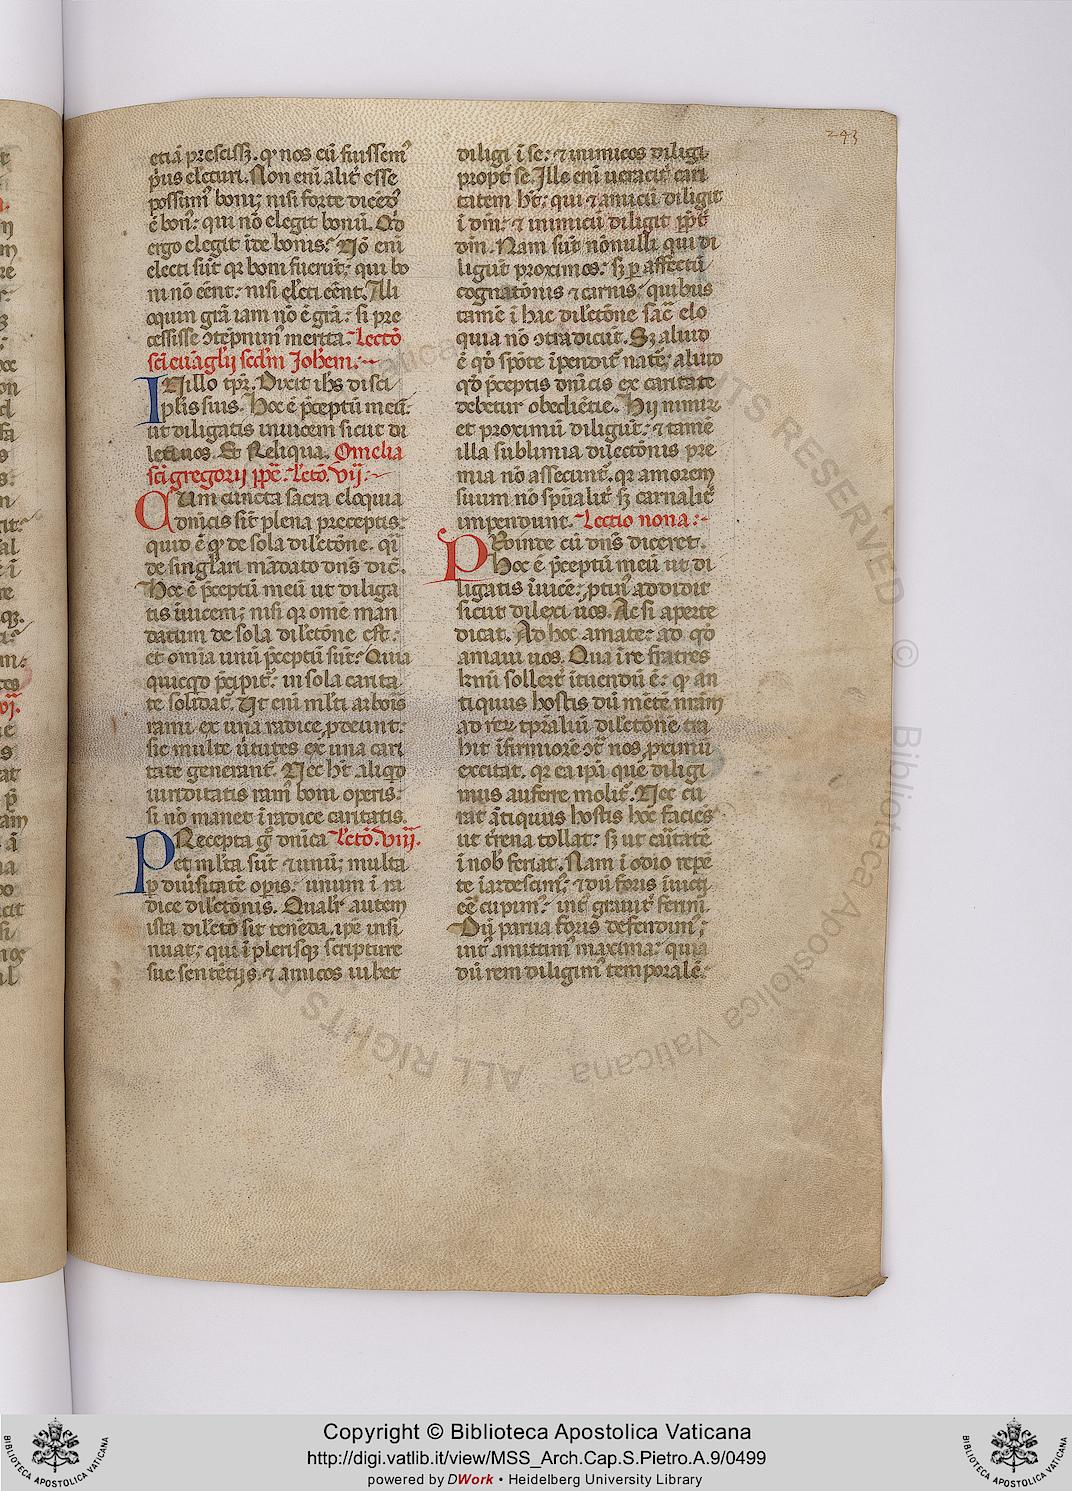 243
etiā presciss. qͥ nos cū fuissemꝰ
p̄us electuri. Non eni alit̄ esse
possumꝰ boni; nisi forte dicēdꝰ
ē bonꝰ: qui nō elegit bonū. Qͥd
ergo elegit īde bonis? Nō eni
electi sūt qr boni fuerūt: qui bo
ni nō eēnt: nisi el̄cti eēnt. Alli
oquin grā iam nō ē grā: si pre
cessisse ↄtēpnimꝰ merita. Lectō
sc̄i euāglij scdm Johem:
INillo tp̄r. Dixit ihs disci
plis suis. Hoc ē p̄ceptū meū.
ut diligatis inuicem sicut di
lexi uos. Et Reliqua. Omelia
sc̄i gregorij pp̄e. Lectō. vij.
CUm cuncta sacra eloquia
dnīcis sīt plena preceptis:
quid ē qͥ de sola dilectōne. q̄i
de singlāri mādato dn̄s dic̄.
Hoc ē p̄ceptū meū ut diliga
tis īuicem; nisi qr om̄e man
datum de sola dil̄ctōne est:
et omīa unū p̄ceptū sūt: Quia
quicqͥd p̄cipit̄: in sola carita
te solidat̄. Ut eni ml̄ti arbois
rami ex una radice ꝓdeunt:
sic multe ūtutes ex una cari
tate generant̄. Nec ht̄ aliqͥd
uiriditatis ramꝰ boni operis:
si nō manet ī radice caritatis.
PRecepta gͦ dnīca Lectō. viij.
et ml̄ta sūt ⁊ unū; multa
ꝑ diuisitatē opis: unum ī ra
dice dil̄ctōnis. Qualr̄ autem
ista dilctō sit tenēda. ip̄e insi
nuat; qui ī plerisqꝫ scripture
sue sentētijs. ⁊ amicos iubet
diligi ī se: ⁊ inimicos diligi
propt̄ se. Ille eni ueracit̄ cari
tatem ht̄: qui ⁊ amicū diligit
ī dm̄: ⁊ inimicū diligit ꝓpt̄
dm̄. Nam sūt nōnulli qui di
ligūt proximos: sꝫ ꝑ affectū
cognatōnis ⁊ carnis: quibus
tamē ī hac dil̄ctōne sac̄ elo
quia nō ↄtradicūt. Sꝫ aliud
ē qͥd spōte īpendit̄ nat̄e: aliud
qͥd p̄ceptis dnīcis ex caritate
debetur obediētie. Hij nimiꝝ
et proximū diligūt: ⁊ tamē
illa sublimia dilectōnis pre
mia nō assecunt̄. qr amorem
suum nō spūalit̄ sꝫ carnalit̄
impendunt. Lectio nona:
PRoinde cū dn̄s diceret.
Hoc ē p̄ceptū meū ut di
ligatis īuicē: ꝓtinꝰ addidit
sicut dilexi uos. Ac si aperte
dicat. Ad hoc amate: ad qͥd
amaui uos. Qua ī re fratres
kmi sollert̄ ītuendū ē: qͥ an
tiquus hostis dū mētē nr̄am
ad reꝝ tp̄raliū dil̄ctōne tra
hit īfirmiorē ↄt̄ nos ꝓximū
excitat. qr ea ip̄a que diligi
mus auferre molit̄. Nec cu
rat ātiquus hostis hoc faciēs
ut t̄rena tollat: sꝫ ut cāritatē
ī nob̄ feriat. Nam ī odio repē
te īardescimꝰ: ⁊ dū foris īuicti
eē cupimꝰ: int̄ grauit̄ ferim̄.
Dū parua foris defendimꝰ;
int̄ amittimꝰ maxima: quia
dū rem diligimꝰ temporalē:
Copyright © Biblioteca Apostolica Vaticana
http://digi.vatlib.it/view/MSS_Arch.Cap.S.Pietro.A.9/0499
powered by DWork • Heidelberg University Library